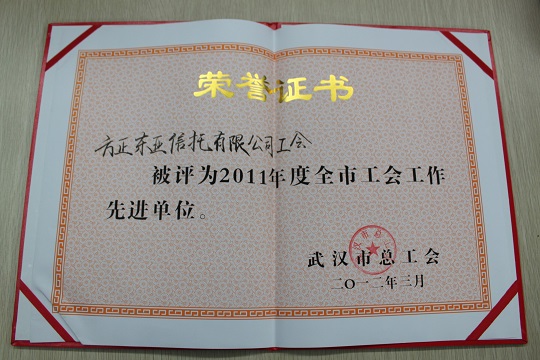 荣誉证书
方正东亚信托有限公司工会
被评为2011年度全市工会工作
先进单位。
武汉市总工会
二〇一二年三月